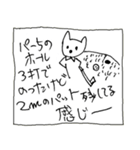 パー5の
ホール
3打で
のったけど
2mのパットを残してる
感じー